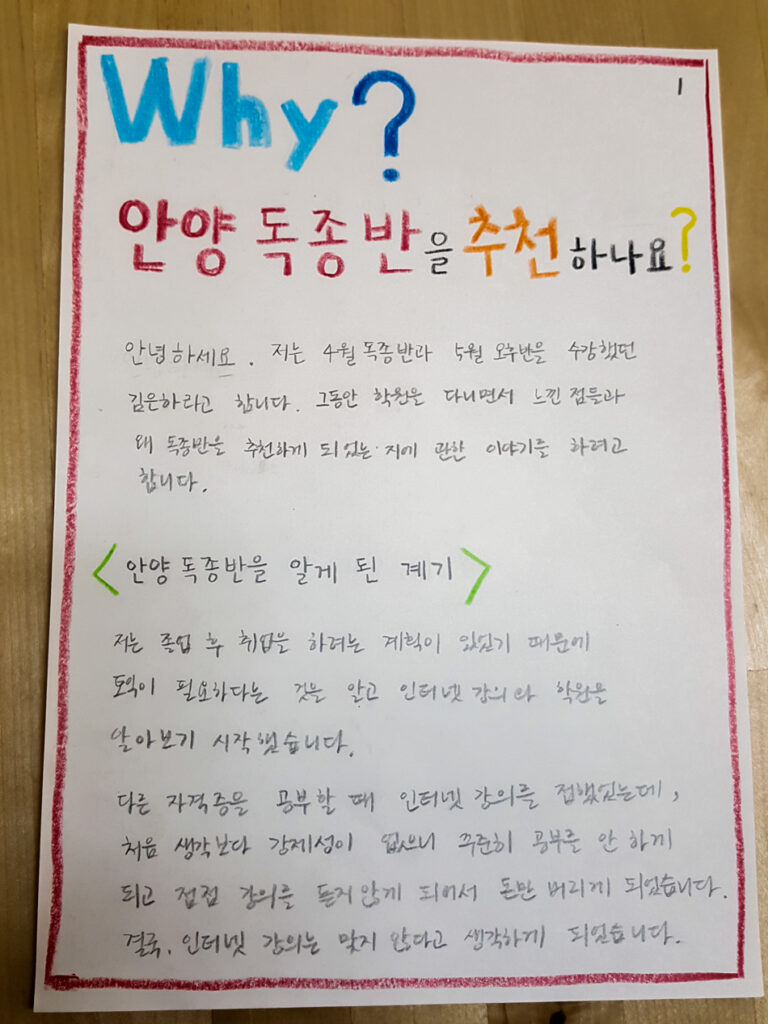 1
Why?
안양 독종반을 추천하나요?
안녕하세요. 저는 4월 독종반과 5월 오후반을 수강했던
김은하라고 합니다. 그동안 학원을 다니면서 느낀 점들과
왜 독종반을 추천하게 되었는지에 관한 이야기를 하려고
합니다.
<안양 독종반을 알게 된 계기>
저는 졸업 후 취업을 하려는 계획이 있었기 때문에
토익이 필요하다는 것을 알고 인터넷 강의와 학원을
알아보기 시작했습니다.
다른 자격증을 공부할 때 인터넷 강의를 접했었는데,
처음 생각보다 강제성이 없으니 꾸준히 공부를 안 하게
되고 점점 강의를 듣지않게 되어서 돈만 버리게 되었습니다.
결국, 인터넷 강의는 맞지 않다고 생각하게 되었습니다.